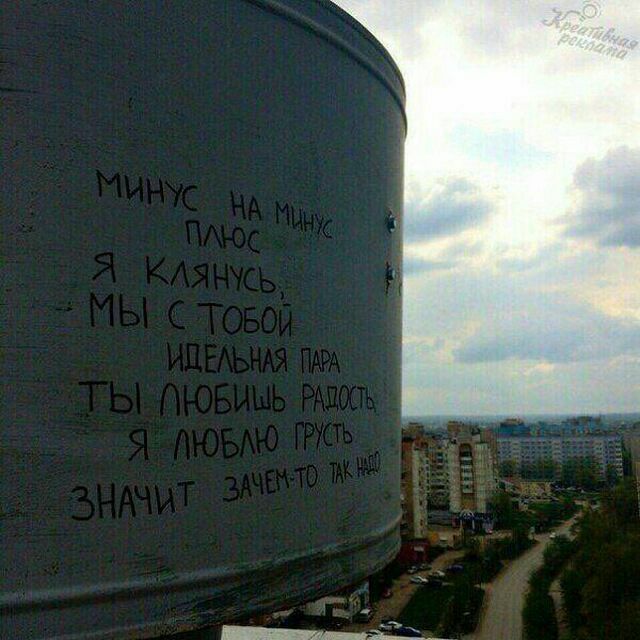 Креативная
реклама
МИНУС НА МИНУС
ПЛЮС
Я КЛЯНУСЬ,
МЫ С ТОБОЙ
ИДЕЛЬНАЯ ПАРА
ТЫ ЛЮБИШЬ РАДОСТЬ,
Я ЛЮБЛЮ ГРУСТЬ
ЗНАЧИТ ЗАЧЕМ-ТО ТАК НАДО